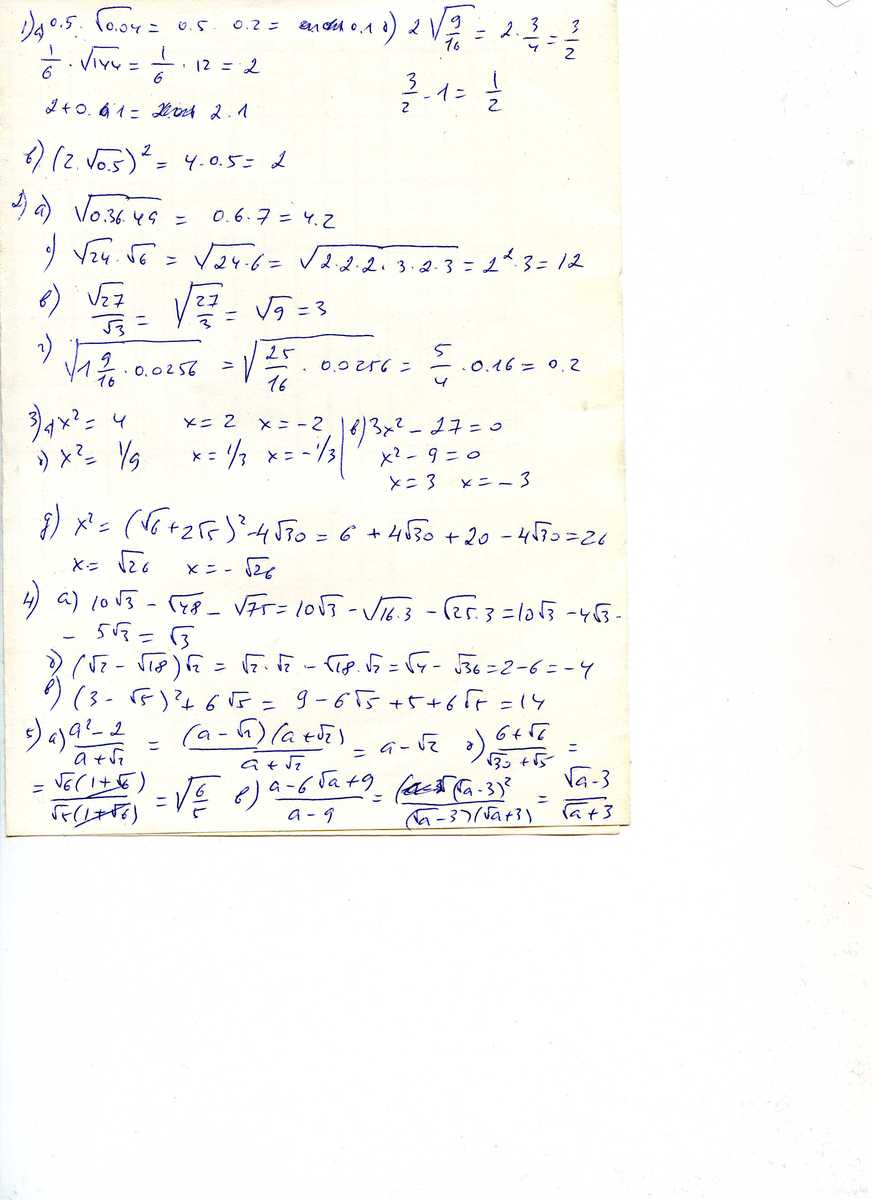 1) а) 0.5 · √0.04 = 0.5 · 0.2 = 0.1 б) 2 √9/16 = 2 · 3/4 = 3/2
1/6 · √144 = 1/6 · 12 = 2
3/2 - 1 = 1/2
2 + 0.1 = 2.1
в) (2 · √0.5)² = 4 · 0.5 = 2
2) а) √0.36 · 49 = 0.6 · 7 = 4.2
б) √24 · √6 = √24 · 6 = √2 · 2 · 2 · 3 · 2 · 3 = 2² · 3 = 12
в) √27/√3 = √27/3 = √9 = 3
г) √1 9/16 · 0.0256 = √25/16 · 0.0256 = 5/4 · 0.16 = 0.2
3) а) x² = 4 x = 2 x = -2 | в) 3x² - 27 = 0
б) x² = 1/9 x = 1/3 x = -1/3 | x² - 9 = 0
x = 3 x = -3
д) x² = (√6 + 2√5)² - 4√30 = 6 + 4√30 + 20 - 4√30 = 26
x = √26 x = -√26
4) а) 10√3 - √48 - √75 = 10√3 - √16·3 - √25·3 = 10√3 - 4√3 -
- 5√3 = √3
б) (√2 - √18)√2 = √2 · √2 - √18 · √2 = √4 - √36 = 2 - 6 = -4
в) (3 - √5)² + 6√5 = 9 - 6√5 + 5 + 6√5 = 14
5) а) a² - 2/a + √2 = (a - √2)(a + √2)/a + √2 = a - √2 б) 6 + √6/√30 + √5 =
= √6(1 + √6)/√5(1 + √6) = √6/5 в) a - 6√a + 9/a - 9 = (√a - 3)²/(√a - 3)(√a + 3) = √a - 3/√a + 3